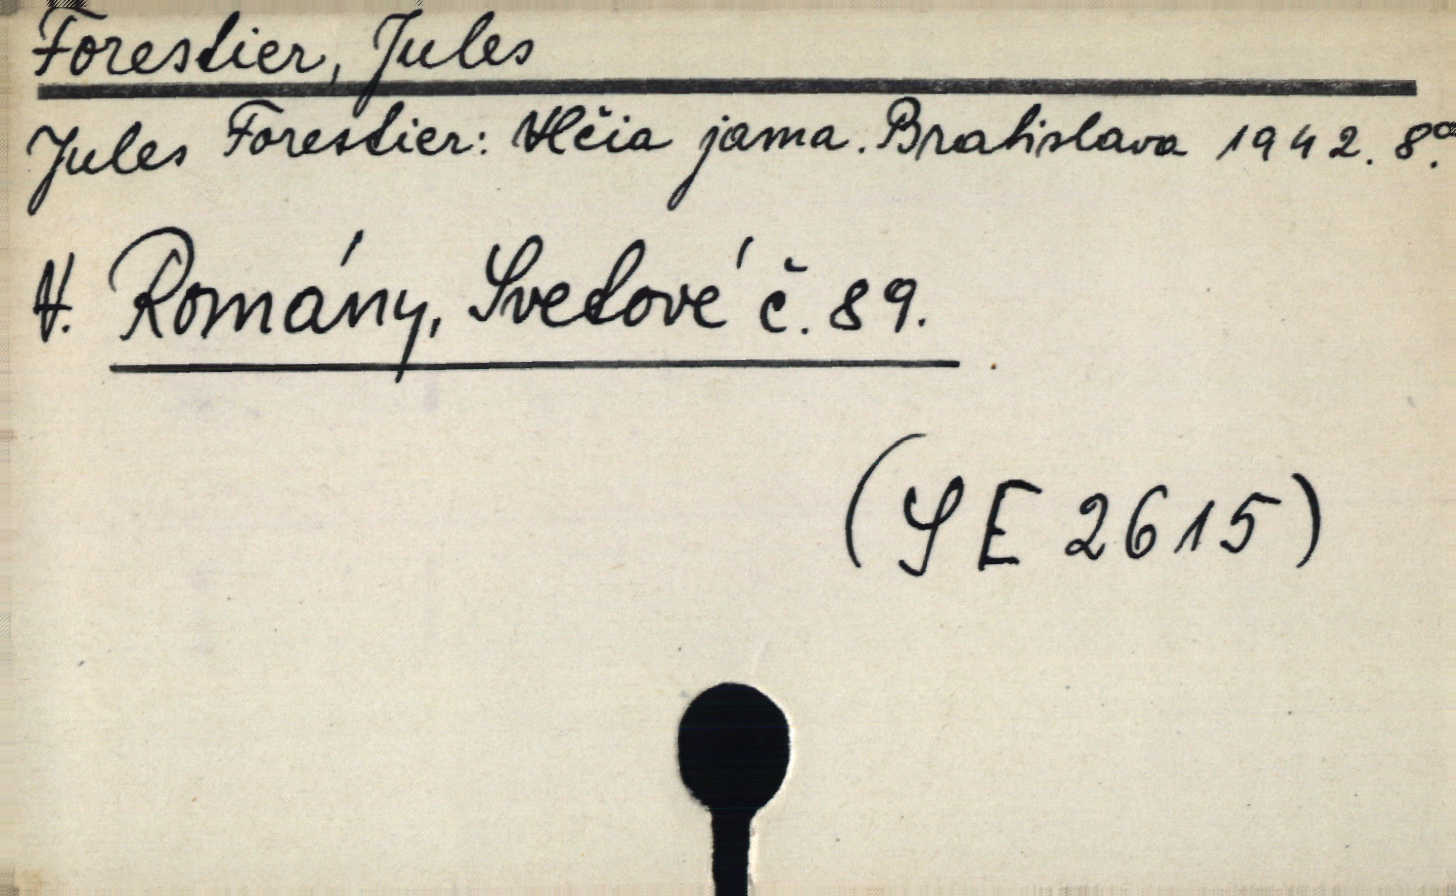 Forestier, Jules
Jules Forestier: Vlčia jama. Bratislava 1942. 8°.
V. Romány, Svetové č. 89.
(SE 2615)